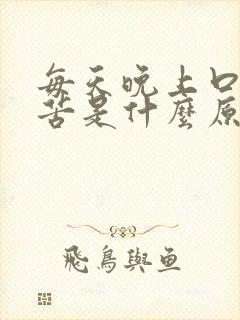 每天晚上口
苦是什麼原
飛鳥與魚